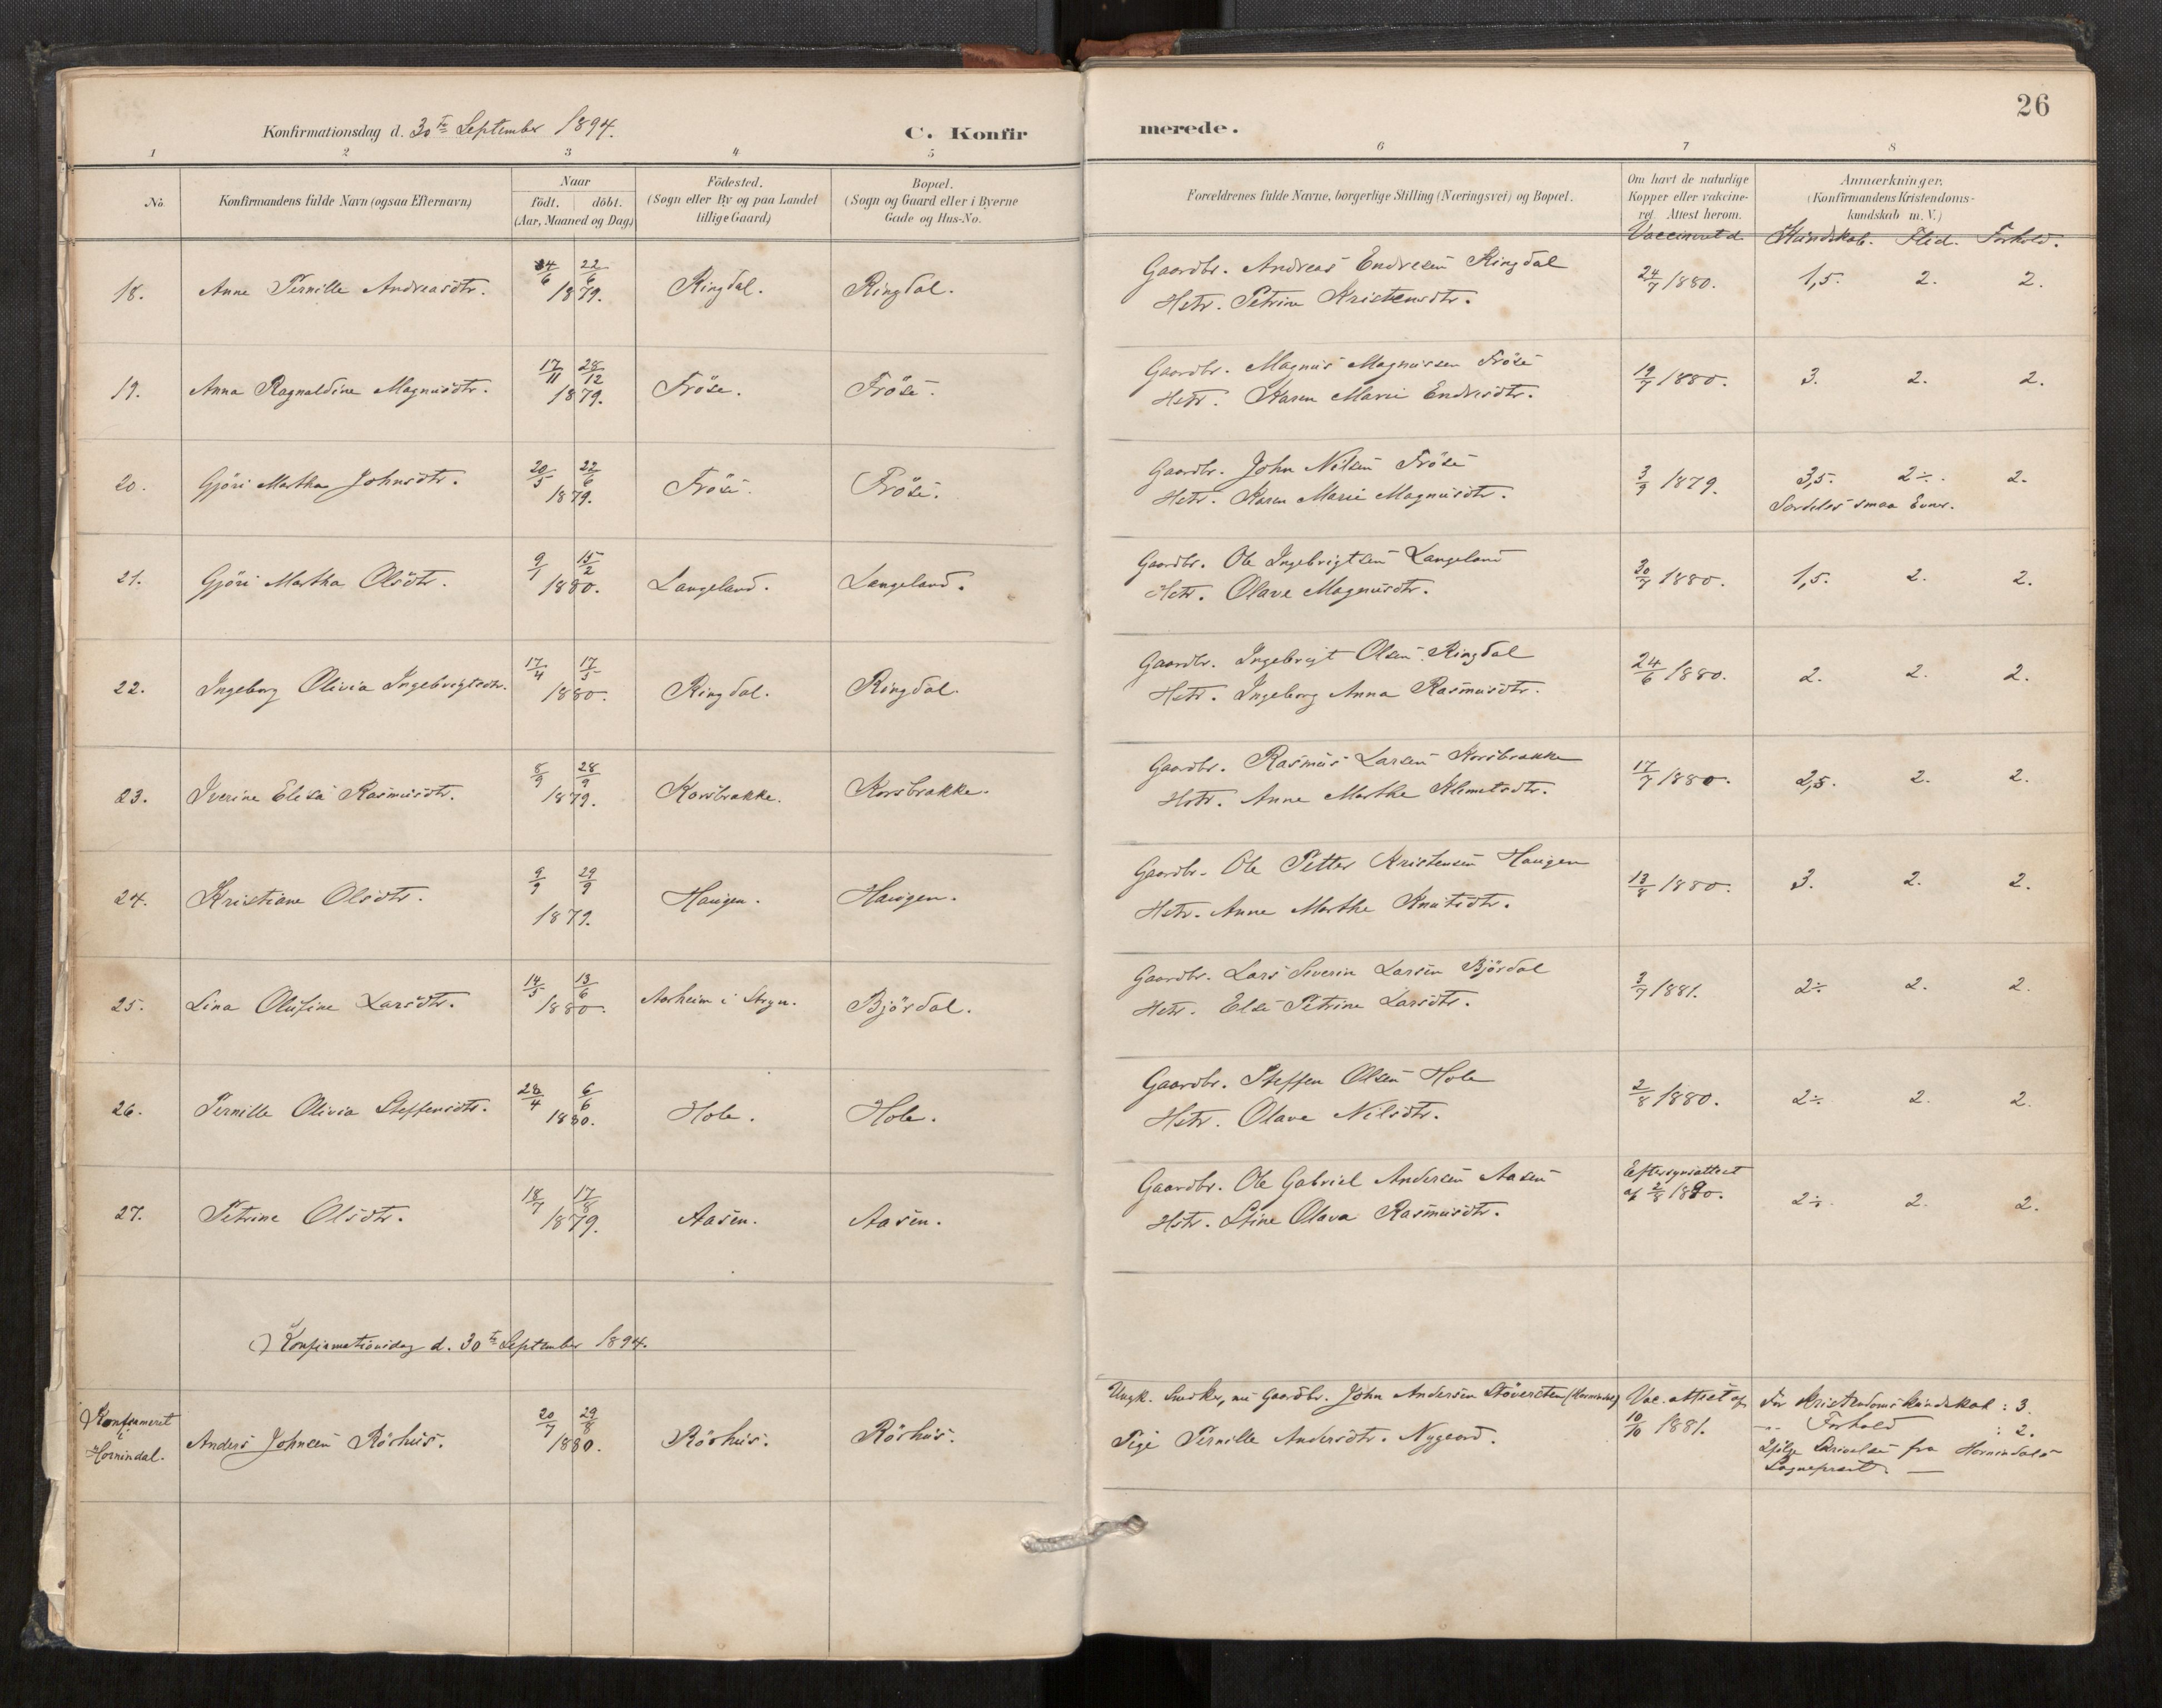 26
Konfirmationsdag d. 30te September 1894.
C. Konfir
merede.
1 2 3 4 5 6 7 8
No.
Konfirmandens fulde Navn (ogsaa Efternavn)
Naar
födt. döbt.
(Aar, Maaned og Dag)
Födested.
(Sogn eller By og paa Landet
tillige Gaard)
Bopæl.
(Sogn og Gaard eller i Byerne
Gade og Hus-No.
Forældrenes fulde Navne, borgerlige Stilling (Næringsvei) og Bopæl.
Om havt de naturlige
Kopper eller vakcine-
ret Attest herom.
Vaccineret d.
Anmærkninger.
(Konfirmandens Kristendoms-
kundskab m. V.)
Kundskab. Flid. Forhold.
18. Anne Pernille Andreasdtr. 22/6 1879. Ringdal. Ringdal.
Gaardbr. Andreas Endresen Ringdal
Hstr. Petrine Kristensdtr.
24/7 1880. 1,5. 2. 2.
19. Anna Ragnaldine Magnusdtr. 17/11 28/12 1879. Fröse. Fröse.
Gaardbr. Magnus Magnussen Fröse
Hstr. Karen Marie Endresdtr.
19/7 1880. 3. 2. 2.
20. Gjöri Martha Johnsdtr. 20/5 22/6 1879. Fröse. Fröse.
Gaardbr. John Nilsen Fröse
Hstr. Karen Marie Magnusdtr.
3/9 1879. 3,5. 2÷. 2.
Særdeles smaa Evner.
21. Gjöri Martha Olsdtr. 9/1 15/2 1880. Langeland. Langeland.
Gaardbr. Ole Ingebrigtsen Langeland
Hstr. Olave Magnusdtr.
30/7 1880. 1,5. 2. 2.
22. Ingeborg Olivia Ingebrigtsdtr. 17/4 17/5 1880. Ringdal. Ringdal.
Gaardbr. Ingebrigt Olsen Ringdal
Hstr. Ingeborg Anna Rasmusdtr.
24/6 1880. 2. 2. 2.
23. Iverine Elisa Rasmusdtr. 8/9 28/9 1879. Korsbrække. Korsbrække.
Gaardbr. Rasmus Larsen Korsbrække
Hstr. Anne Marthe Klemetsdtr.
17/7 1880. 2,5. 2. 2.
24. Kristiane Olsdtr. 9/9 29/9 1879. Haugen. Haugen.
Gaardbr. Ole Petter Kristensen Haugen
Hstr. Anne Marthe Knutsdtr.
13/8 1880. 3. 2. 2.
25. Lina Olufine Larsdtr. 14/5 13/6 1880. Aarheim i Stryn. Björdal.
Gaardbr. Lars Severin Larsen Björdal
Hstr. Else Petrine Larsdtr.
3/7 1881. 2÷. 2. 2.
26. Pernille Olivia Steffensdtr. 28/4 6/6 1880. Hole. Hole.
Gaardbr. Steffen Olsen Hole
Hstr. Olave Nilsdtr.
2/8 1880. 2÷. 2. 2.
27. Petrine Olsdtr. 18/7 17/8 1879. Aasen. Aasen.
Gaardbr. Ole Gabriel Andersen Aasen
Hstr. Stine Olava Rasmusdtr.
Eftersynsattest
af 2/8 1880. 2÷. 2. 2.
Konfirmationsdag d. 30te September 1894.
Konfirmeret
i
Hornindal.
Anders Johnsen Rörhus. 20/7 29/8 1880. Rörhus. Rörhus.
Ungk. Snedker, nu Gaardbr. John Andersen
Pige Pernille Andersdtr. Nygaard.
Vac. attest af
10/10 1881.
For Kristendomskundskab : 3.
-"- Forhold : 2.
Ifölge Skrivelse fra Hornindals
Sogneprest. —